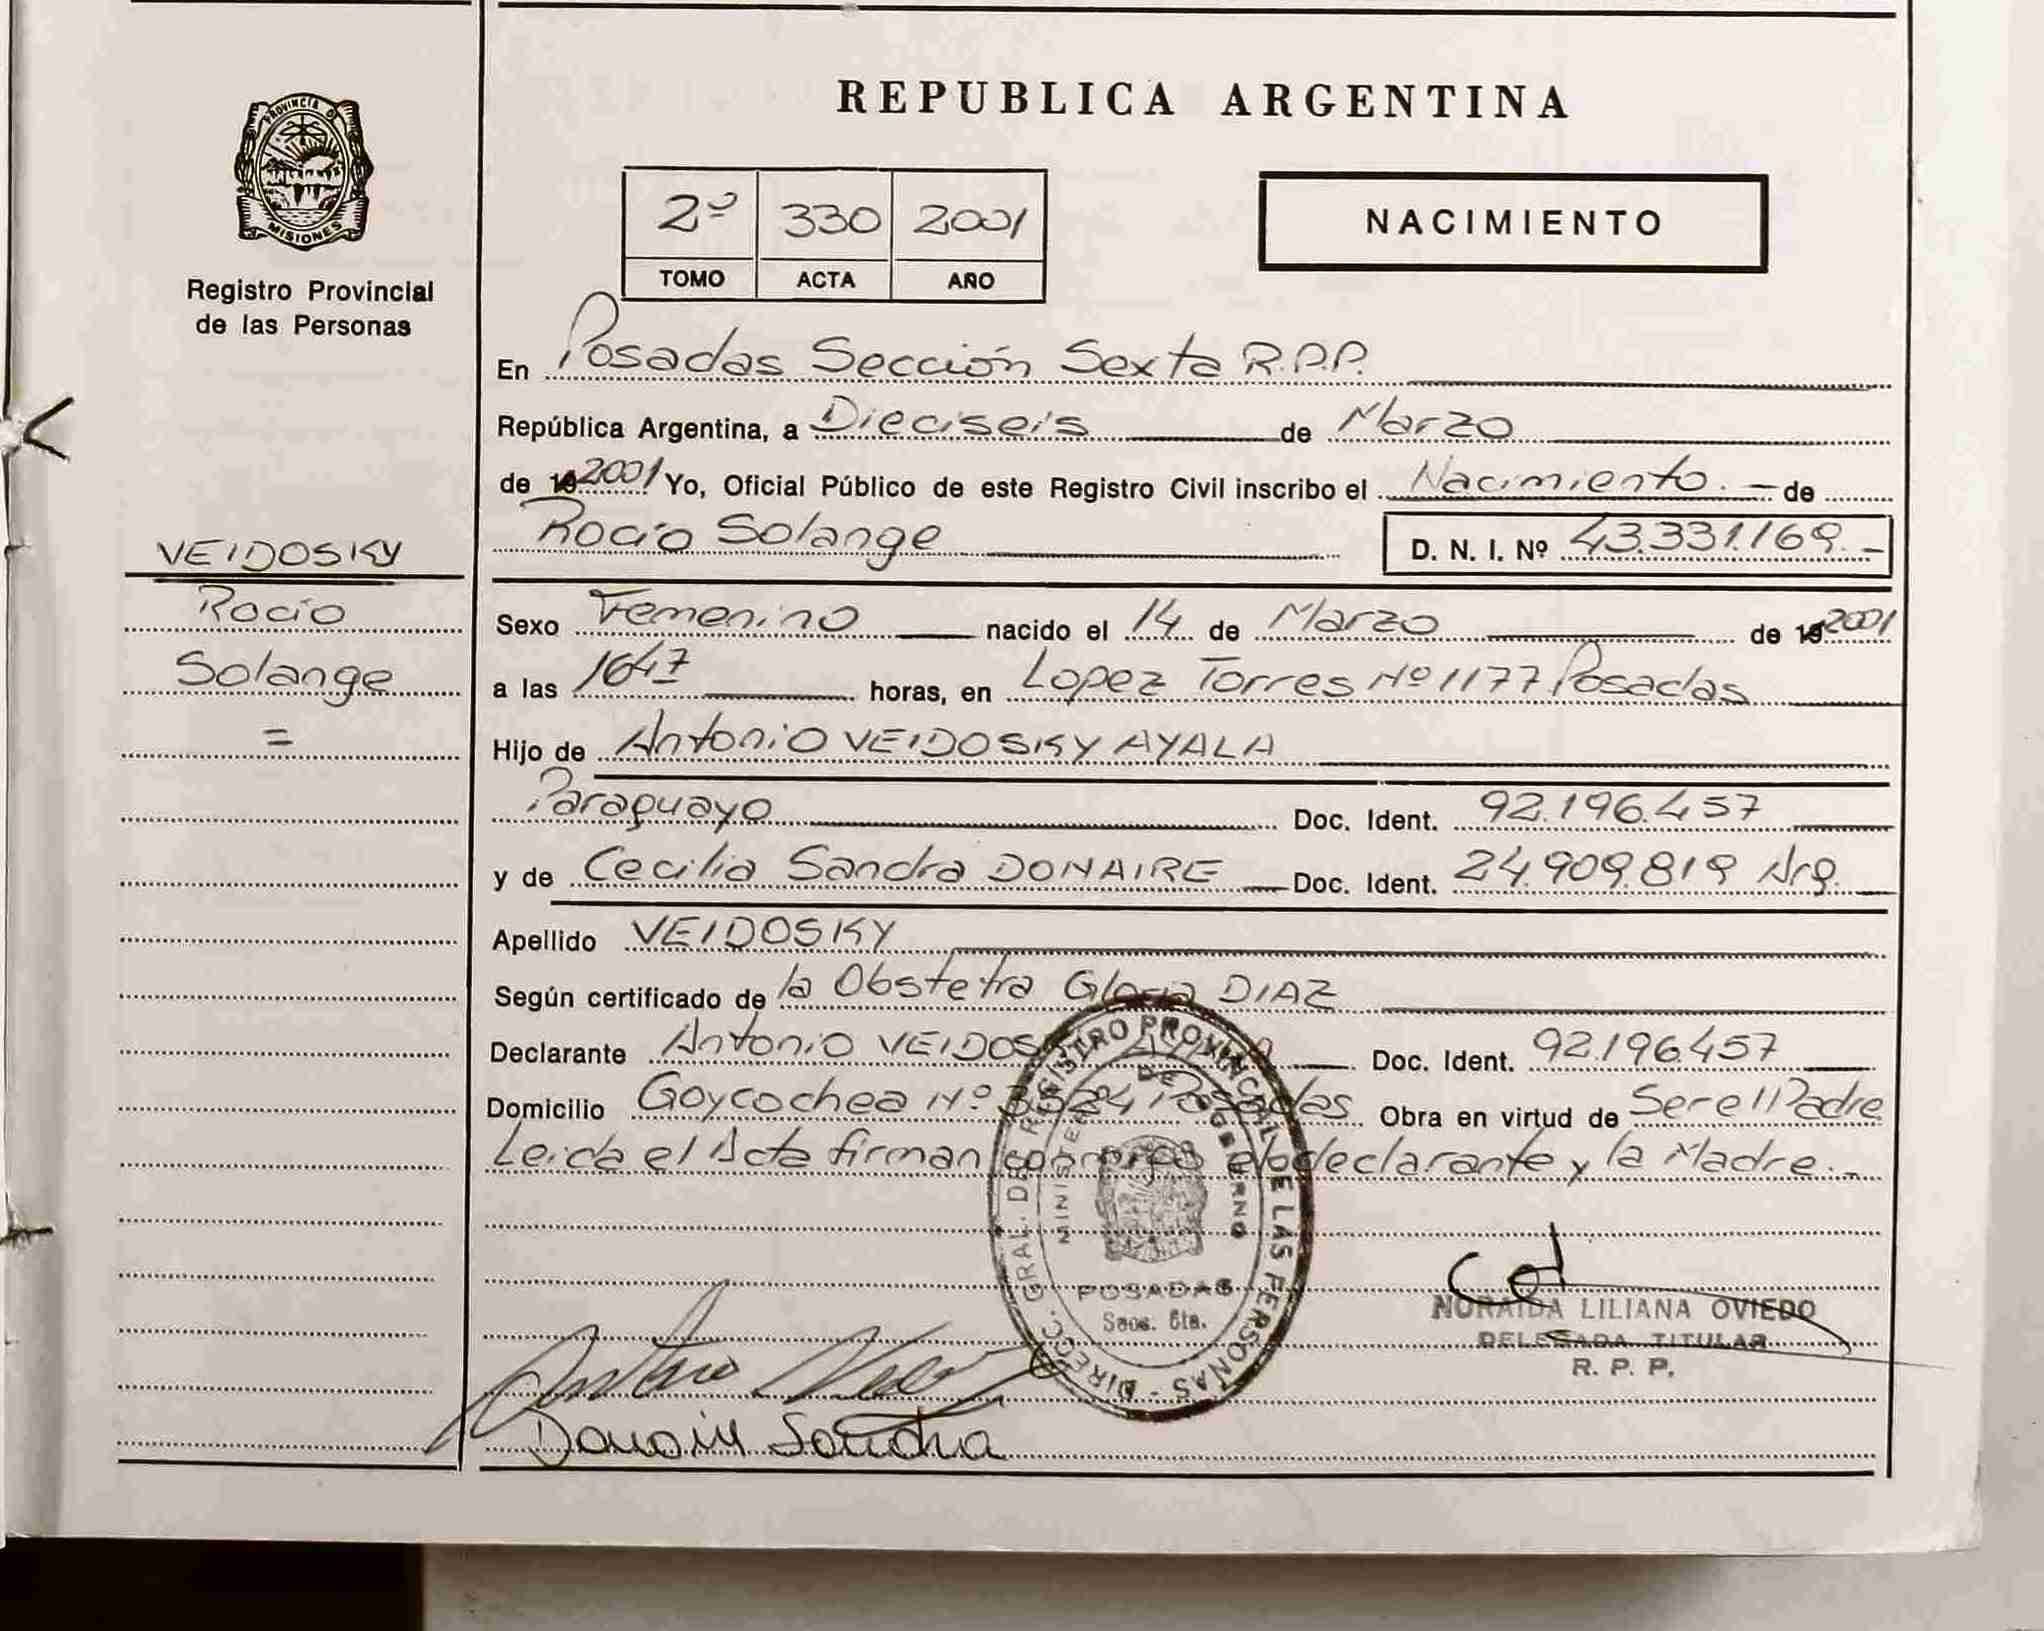 REPUBLICA ARGENTINA
PROVINCIA DE
MISIONES
Registro Provincial
de las Personas
2º 330 2001
TOMO ACTA AÑO
NACIMIENTO
En Posadas Sección Sexta R.P.P.
República Argentina, a Dieciseis de Marzo
de 19 2001 Yo, Oficial Público de este Registro Civil inscribo el Nacimiento.- de
Rocío Solange D. N. I. Nº 43.331.169.-
VEIDOSKY
Rocío
Solange
=
Sexo Femenino nacido el 14 de Marzo de 19 2001
a las 1647 horas, en Lopez Torres Nº 1177 Posadas
Hijo de Antonio VEIDOSKY AYALA
Paraguayo Doc. Ident. 92.196.457
y de Cecilia Sandra DONAIRE Doc. Ident. 24.909.819 Arg.
Apellido VEIDOSKY
Según certificado de la Obstetra Gloria DIAZ
Declarante Antonio VEIDOSKY AYALA Doc. Ident. 92.196.457
Domicilio Goycochea Nº 3524 Posadas Obra en virtud de Ser el Padre
Leída el Acta firman conmigo el declarante y la Madre.-
DIRECC. GRAL. DEL REGISTRO PROVINCIAL DE LAS PERSONAS
MINISTERIO DE GOBIERNO
POSADAS
Secc. 6ta.
NORAIDA LILIANA OVIEDO
DELEGADA TITULAR
R. P. P.
Antonio
Sandra